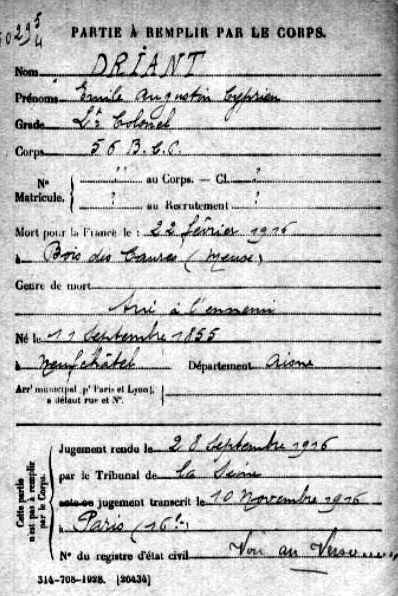 PARTIE À REMPLIR PAR LE CORPS.
Nom DRIANT
Prénoms Emile Augustin Cyprien
Grade Lt Colonel
Corps 56 B.C.P.
No Matricule. " au Corps. — Cl. ?
? au Recrutement ?
Mort pour la France le : 22 février 1916
à Bois des Caures (Meuse)
Genre de mort
Tué à l'ennemi
Né le 11 Septembre 1855
à Neufchâtel Département Aisne
Arrt municipal pr Paris et Lyon,
à défaut rue et No.
Cette partie n'est pas à remplir par le Corps.
Jugement rendu le 28 Septembre 1916
par le Tribunal de La Seine
acte ou jugement transcrit le 10 Novembre 1916
à Paris (16e)
No du registre d'état civil Voir au Verso
314-708-1928. [20434]